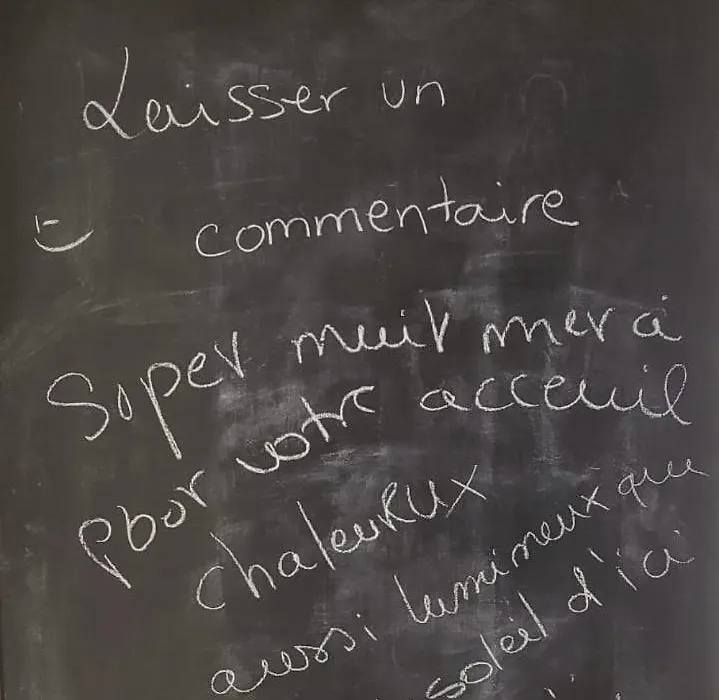 Laisser un
commentaire
Super nuit merci
pour votre acceuil
chaleureux
aussi lumineux que
soleil d'ici